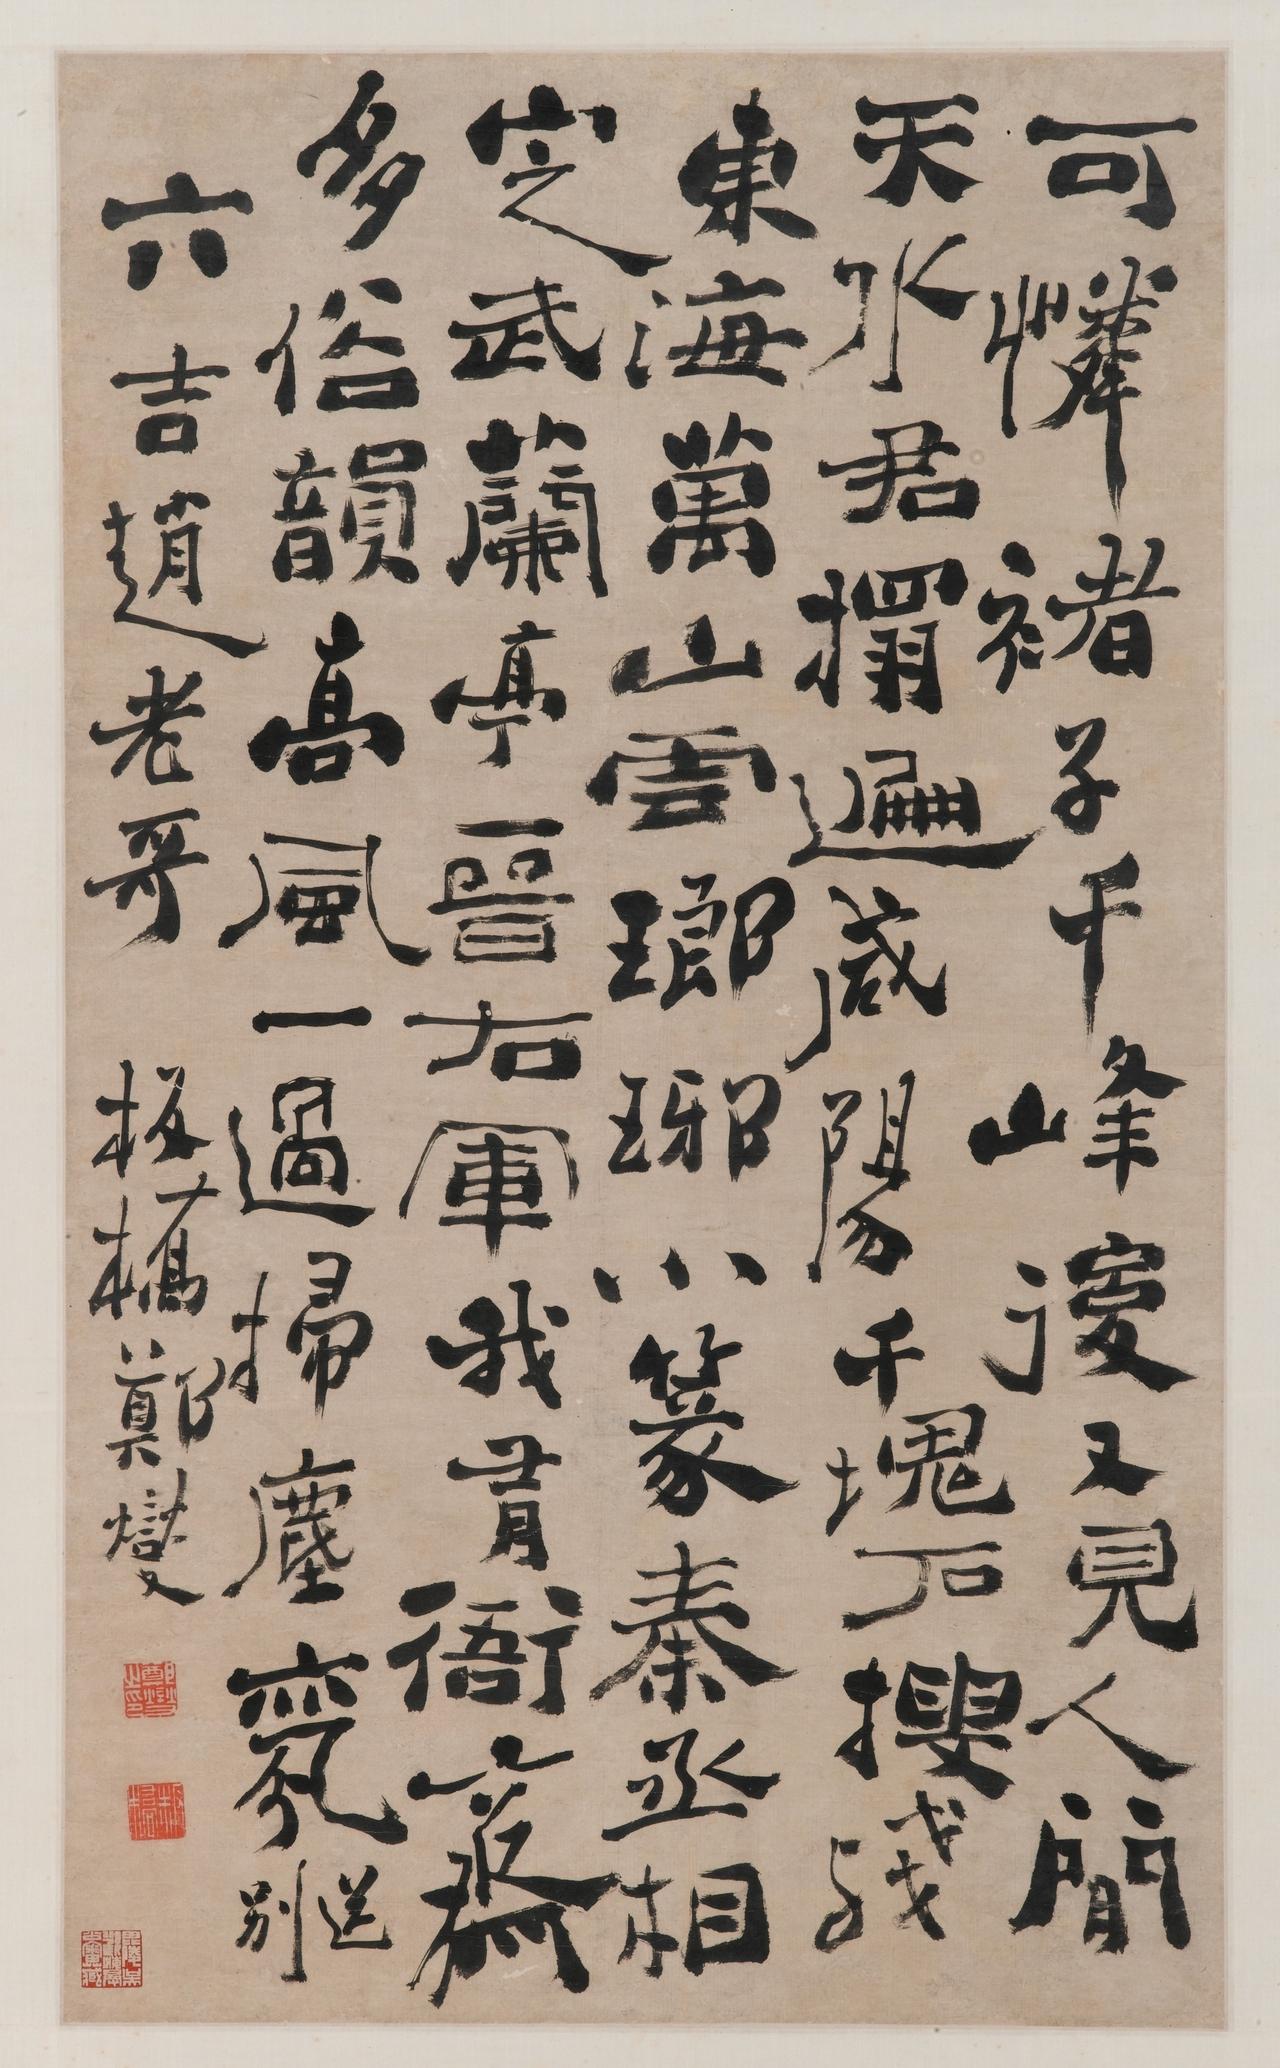 可憐褚子千峰後又見人間
天水君搨遍咸陽千塊石搜殘
東海萬山雲瑯琊小篆秦丞相
定武蘭亭晉右軍我有衙齋
多俗韻高風一過掃塵氛送別
六吉趙老哥
板橋鄭燮
鄭燮之印